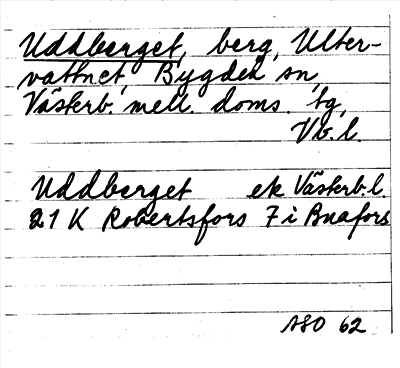 Uddberget, berg, Ulter-
vattnet, Bygdeå sn,
Västerb. mell. doms. tg,
Vb. l.
Uddberget ek Västerb. l.
21 K Robertsfors 7 i Bnafors
ASO 62